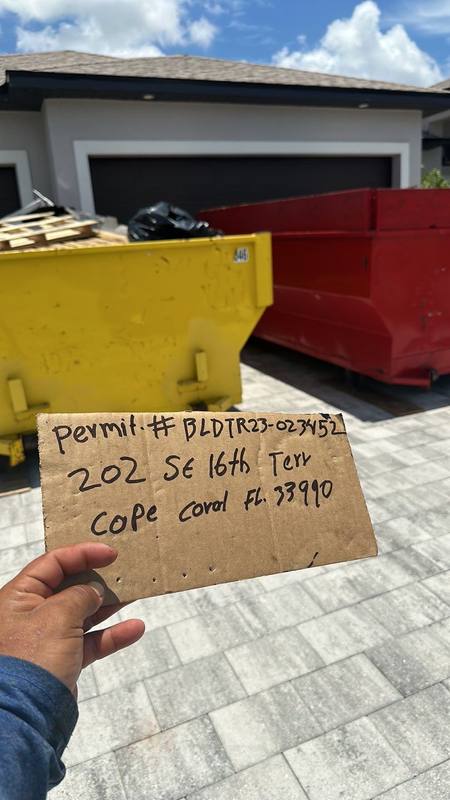 846
permit.# BLDTR23-023452
202 SE 16th Terr
Cope Coral FL. 33990